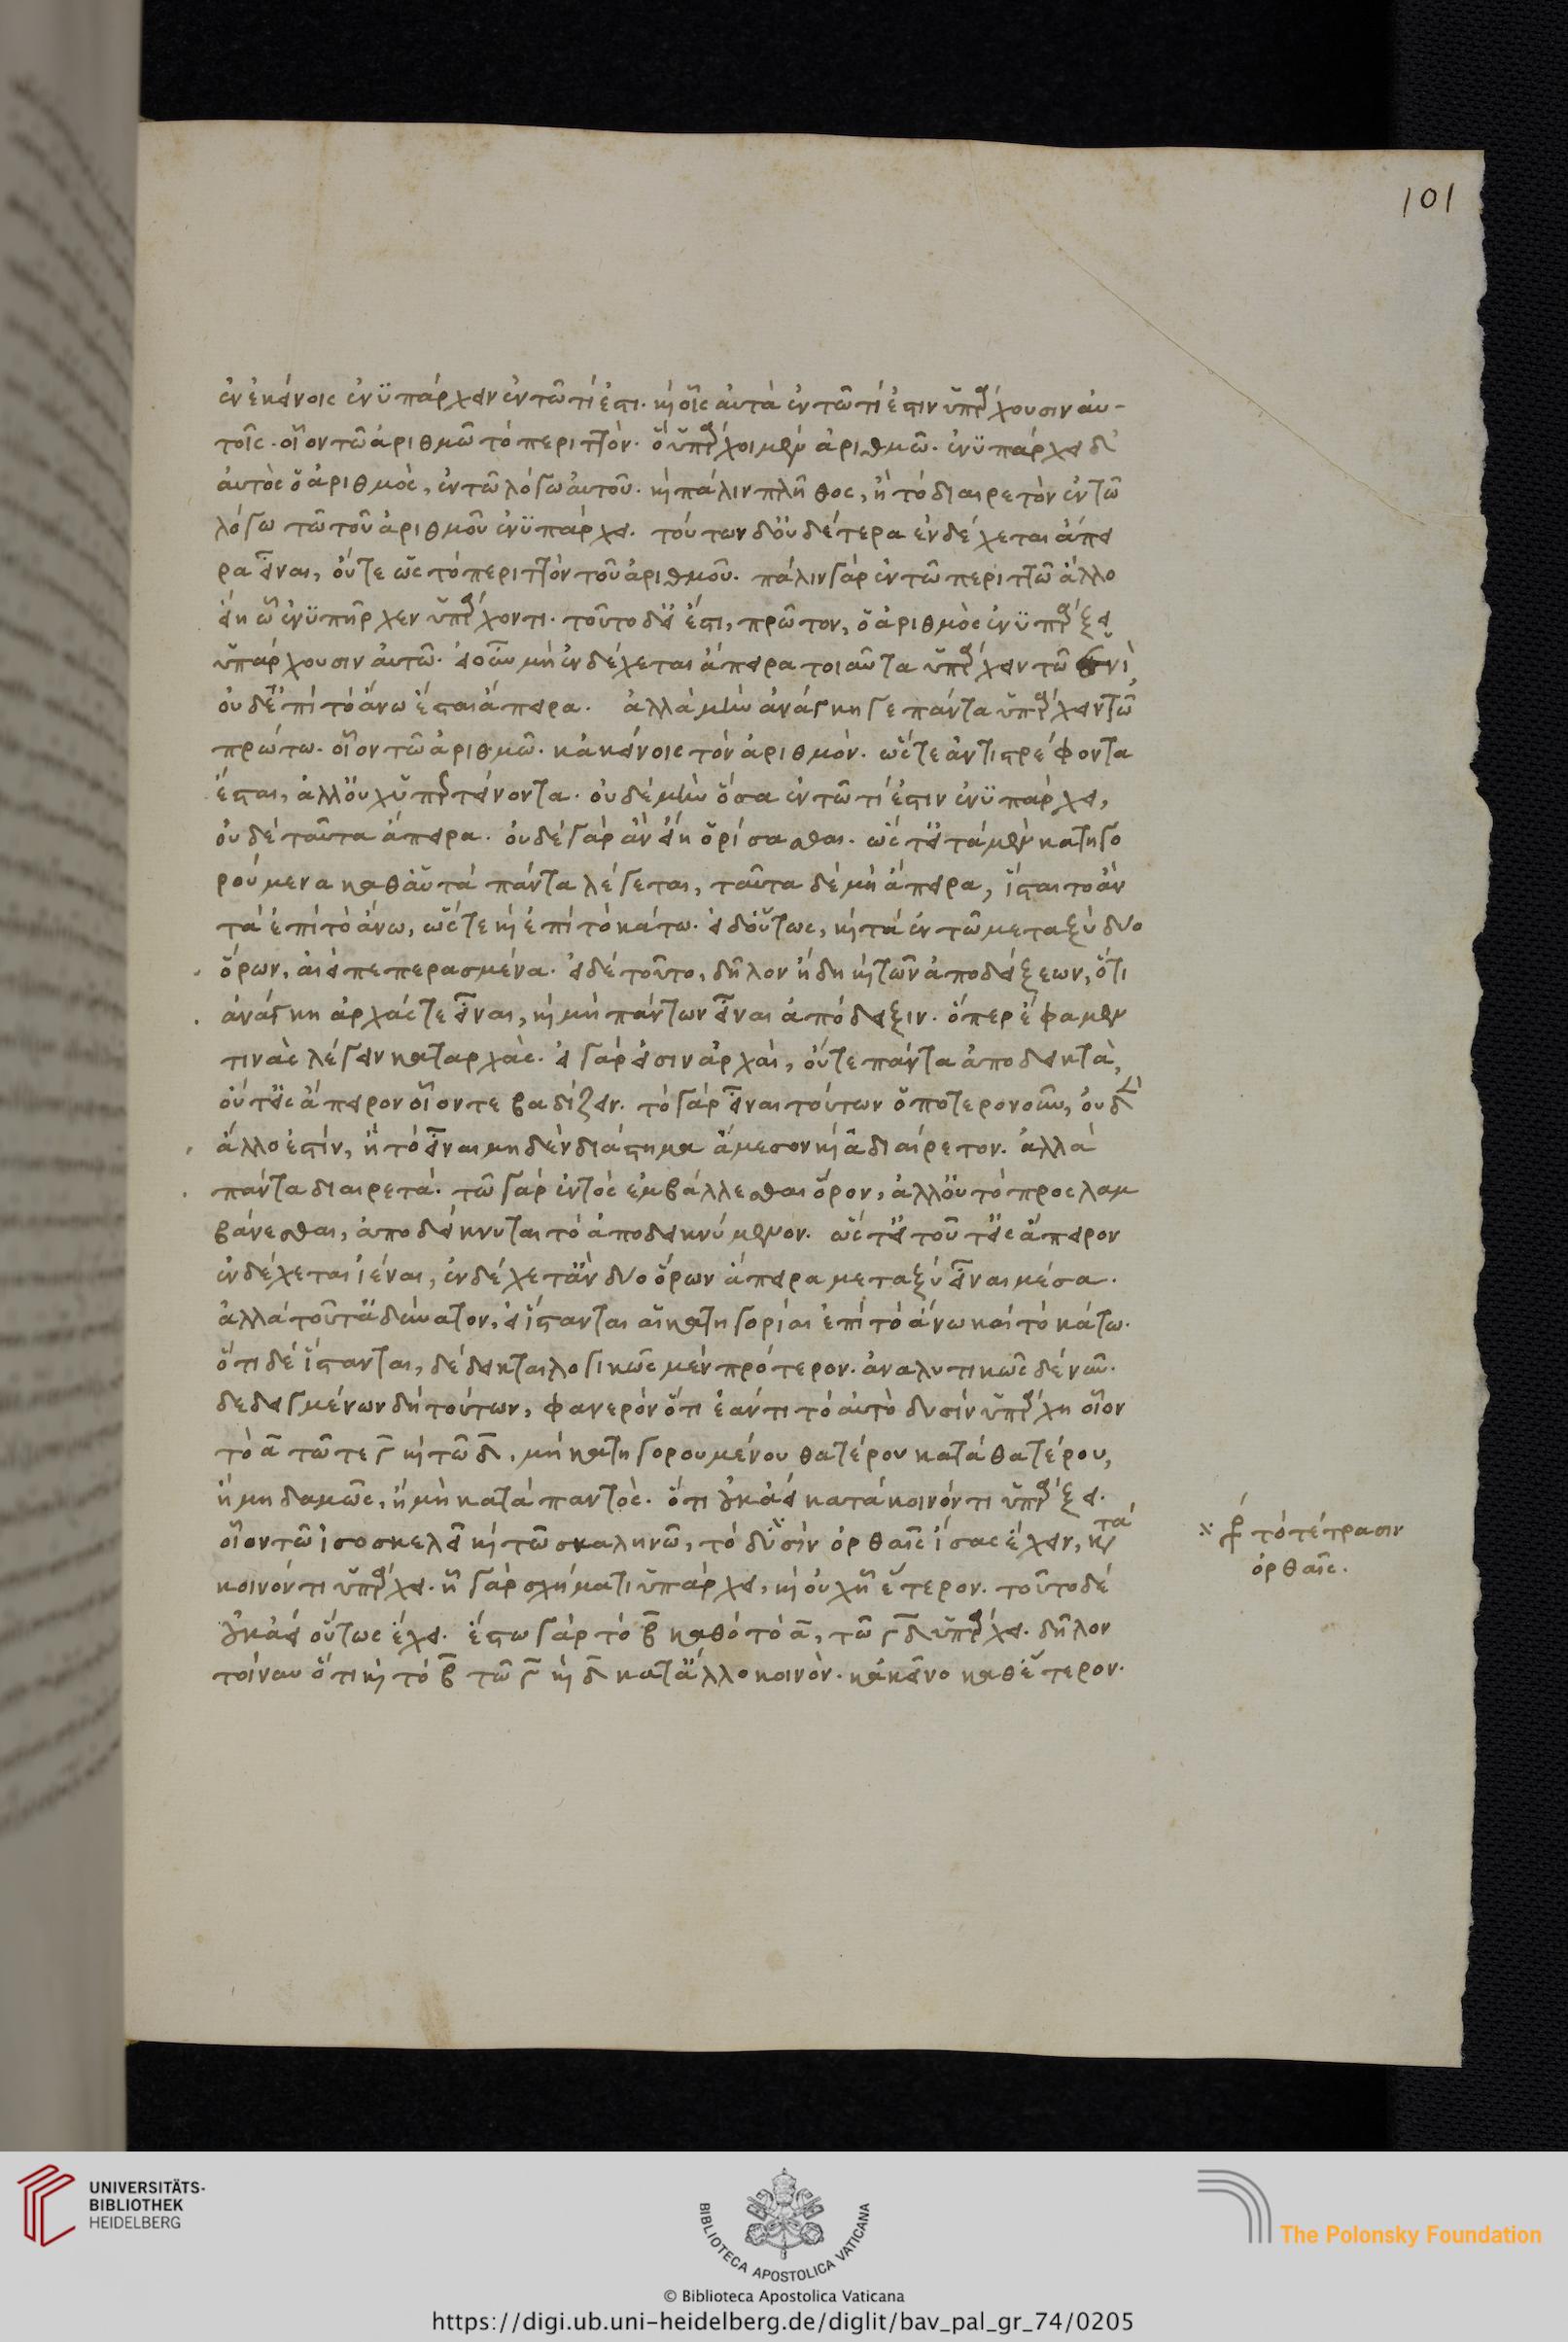 101
ἐν ἐκείνοις ἐνϋπάρχειν ἐν τῶ τί ἐστι· καὶ οἷς αὐτὰ ἐν τῶ τί ἐστιν ὑπάρχουσιν αὐ-
τοῖς· οἷον τῶ ἀριθμῶ τὸ περιττόν· ὃ ὑπάρχει μὲν ἀριθμῶ· ἐνϋπάρχει δ᾽
αὐτὸς ὁ ἀριθμὸς, ἐν τῶ λόγω αὐτοῦ· καὶ πάλιν πλῆθος, ἢ τὸ διαιρετὸν ἐν τῶ
λόγω τῶ τοῦ ἀριθμοῦ ἐνϋπάρχει· τούτων δ᾽ οὐδέτερα ἐνδέχεται ἄπει
ρα εἶναι, οὔτε ὡς τὸ περιττὸν τοῦ ἀριθμοῦ· πάλιν γὰρ ἐν τῶ περιττῶ ἄλλο
εἴη ὧ ἐνϋπῆρχεν ὑπάρχοντι· τοῦτο δ᾽ εἰ ἔστι, πρῶτον, ὁ ἀριθμὸς ἐνϋπάρξει
ὑπάρχουσιν αὐτῶ· εἰ οὖν μὴ ἐνδέχεται ἄπειρα τοιαῦτα ὑπάρχειν τῶ ἑνὶ,
οὐδ᾽ ἐπὶ τὸ ἄνω ἔσται ἄπειρα. ἀλλὰ μὴν ἀνάγκη γε πάντα ὑπάρχειν τῶ
πρώτω· οἷον τῶ ἀριθμῶ· κἀκείνοις τὸν ἀριθμόν· ὥστε ἀντιστρέφοντα
ἔσται, ἀλλ᾽ οὐχ ὑπερτείνοντα· οὐδὲ μὴν ὅσα ἐν τῶ τί ἐστιν ἐνϋπάρχει,
οὐδὲ ταῦτα ἄπειρα· οὐδὲ γὰρ ἂν εἴη ὁρίσασθαι· ὥστ᾽ εἰ τὰ μὲν κατηγο
ρούμενα καθ᾽ αὑτὰ πάντα λέγεται, ταῦτα δὲ μὴ ἄπειρα, ἵσταιτο ἂν
τὰ ἐπὶ τὸ ἄνω, ὥστε καὶ ἐπὶ τὸ κάτω· εἰ δ᾽ οὕτως, καὶ τὰ ἐν τῶ μεταξὺ δύο
ὅρων, ἀεὶ πεπερασμένα· εἰ δὲ τοῦτο, δῆλον ἤδη καὶ τῶν ἀποδείξεων, ὅτι
ἀνάγκη ἀρχάς τε εἶναι, καὶ μὴ πάντων εἶναι ἀπόδειξιν· ὅπερ ἔφαμεν
τινὰς λέγειν κατ᾽ ἀρχὰς· εἰ γὰρ εἰσιν ἀρχαὶ, οὔτε πάντα ἀποδεικτὰ,
οὔτ᾽ εἰς ἄπειρον οἷόν τε βαδίζειν· τὸ γὰρ εἶναι τούτων ὁποτερονοῦν, οὐδὲν
ἄλλο ἐστὶν, ἢ τὸ εἶναι μηδὲν διάστημα ἄμεσον καὶ ἀδιαίρετον· ἀλλὰ
πάντα διαιρετά· τῶ γὰρ ἐντὸς ἐμβάλλεσθαι ὅρον, ἀλλ᾽ οὐ τὸ προσλαμ
βάνεσθαι, ἀποδείκνυται τὸ ἀποδεικνύμενον· ὥστ᾽ εἰ τοῦτ᾽ εἰς ἄπειρον
ἐνδέχεται ἰέναι, ἐνδέχετ᾽ ἂν δύο ὅρων ἄπειρα μεταξὺ εἶναι μέσα·
ἀλλὰ τοῦτ᾽ ἀδύνατον, εἰ ἵστανται αἱ κατηγορίαι ἐπὶ τὸ ἄνω καὶ τὸ κάτω·
ὅτι δὲ ἵστανται, δέδεικται λογικῶς μὲν πρότερον· ἀναλυτικῶς δὲ νῦν·
δεδειγμένων δὴ τούτων, φανερὸν ὅτι ἐάν τι τὸ αὐτὸ δυσὶν ὑπάρχη οἷον
τὸ α τῶ τε γ καὶ τῶ δ, μὴ κατηγορουμένου θατέρου κατὰ θατέρου,
ἢ μηδαμῶς, ἢ μὴ κατὰ παντός· ὅτι οὐκ ἀεὶ κατὰ κοινόν τι ὑπάρξει·
οἷον τῶ ἰσοσκελεῖ καὶ τῶ σκαληνῶ, τὸ δυσὶν ὀρθαῖς ἴσας ἔχειν, κατά
κοινόν τι ὑπάρχει· ἧ γὰρ σχῆμά τι ὑπάρχει, καὶ οὐχ ἧ ἕτερον· τοῦτο δὲ
οὐκ ἀεὶ οὕτως ἔχει· ἔστω γὰρ τὸ β καθ᾽ ὃ τὸ α, τῶ γ δ ὑπάρχει· δῆλον
τοίνυν ὅτι καὶ τὸ β τῶ γ καὶ δ κατ᾽ ἄλλο κοινόν· κἀκεῖνο καθ᾽ ἕτερον·
τὸ τέτρασιν
ὀρθαῖς.
UNIVERSITÄTS-
BIBLIOTHEK
HEIDELBERG
BIBLIOTECA APOSTOLICA VATICANA
The Polonsky Foundation
© Biblioteca Apostolica Vaticana
https://digi.ub.uni-heidelberg.de/diglit/bav_pal_gr_74/0205